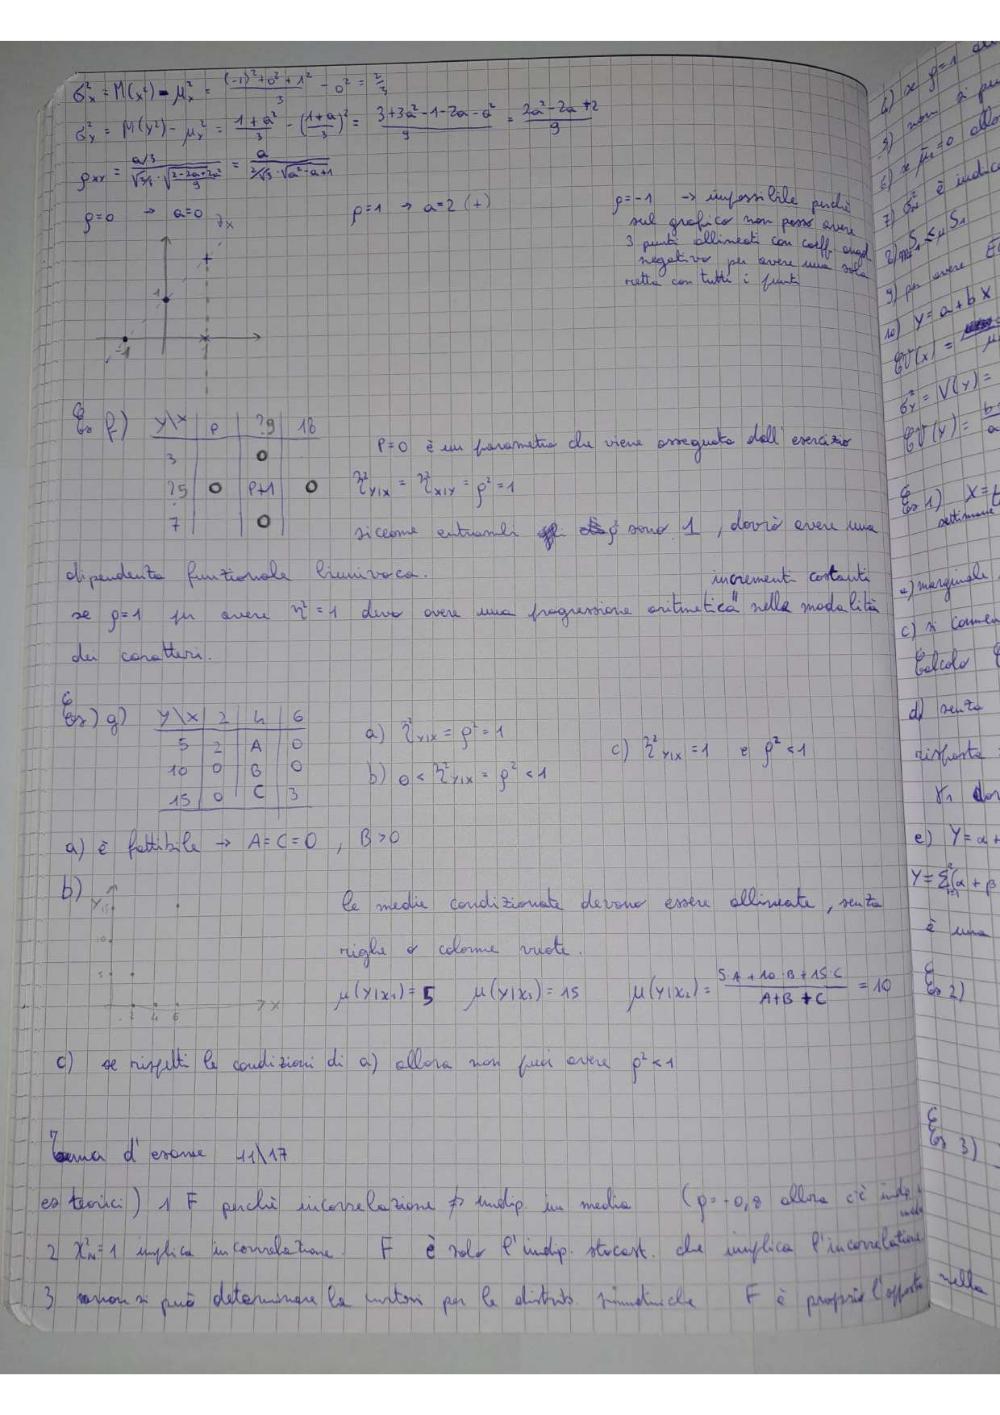 σ²x = M(x²) - μ²x = ((-1)² + 0² + 1²)/3 - 0² = 2/3
σ²y = M(y²) - μ²y = (1+a²)/3 - ((1+a)/3)² = (3+3a²-1-2a-a²)/9 = (2a²-2a+2)/9
ρxy = (a/3)/(√2/3 · √((2-2a+2a²)/9)) = a/(2/√3 · √(a²-a+1))
ρ=0 → a=0
ρ=1 → a=2 (+)
ρ=-1 → impossibile perché
sul grafico non posso avere
3 punti allineati con coeff. angol
negativo per avere una sola
retta con tutti i punti
1
-1
Es f) Y\X | P | ?9 | 18
3 | | 0 |
?5 | 0 | P+1 | 0
7 | | 0 |
P=0 è un parametro che viene assegnato dall'esercizio
η²Y|X = η²X|Y = ρ² = 1
siccome entrambi sono 1, dovrò avere una
dipendenza funzionale biunivoca.
incrementi costanti
se ρ=1 per avere η²=1 devo avere una progressione aritmetica" nelle modalità
dei caratteri.
Es) g) Y\X | 2 | 4 | 6
5 | 2 | A | 0
10 | 0 | B | 0
15 | 0 | C | 3
a) η²Y|X = ρ² = 1
b) 0 < η²Y|X = ρ² < 1
c) η²Y|X = 1 e ρ² < 1
a) è fattibile → A=C=0, B>0
b)
Y
X
5
2 4 6
le medie condizionate devono essere allineate, senza
righe o colonne vuote.
μ(Y|x₁) = 5 μ(Y|x₃) = 15 μ(Y|x₂) = (5·A + 10·B + 15·C)/(A+B+C) = 10
c) se rispetti le condizioni di a) allora non puoi avere ρ² < 1
Tema d'esame 11\17
es teorici) 1 F perché incorrelazione ⇏ indip. in media (ρ=-0,8 allora c'è indip.
2 X²N=1 implica incorrelazione. F è solo l'indip. stocast. che implica l'incorrelazione
3 non si può determinare la per le distrib. simmetriche F è proprio l'opposto
6) x ρ=1
5) non si può
6) x μ=0 allo
7) σ² è indica
9) per avere
10) Y = a + b X
CV(x) =
σ²y = V(Y) =
CV(Y) =
Es 1) X=
settimane
a) marginale
c) si
Calcolo
d) senza
risposta
e) Y = α +
Y = Σ(α + β
è una
Es 2)
Es 3)
nella